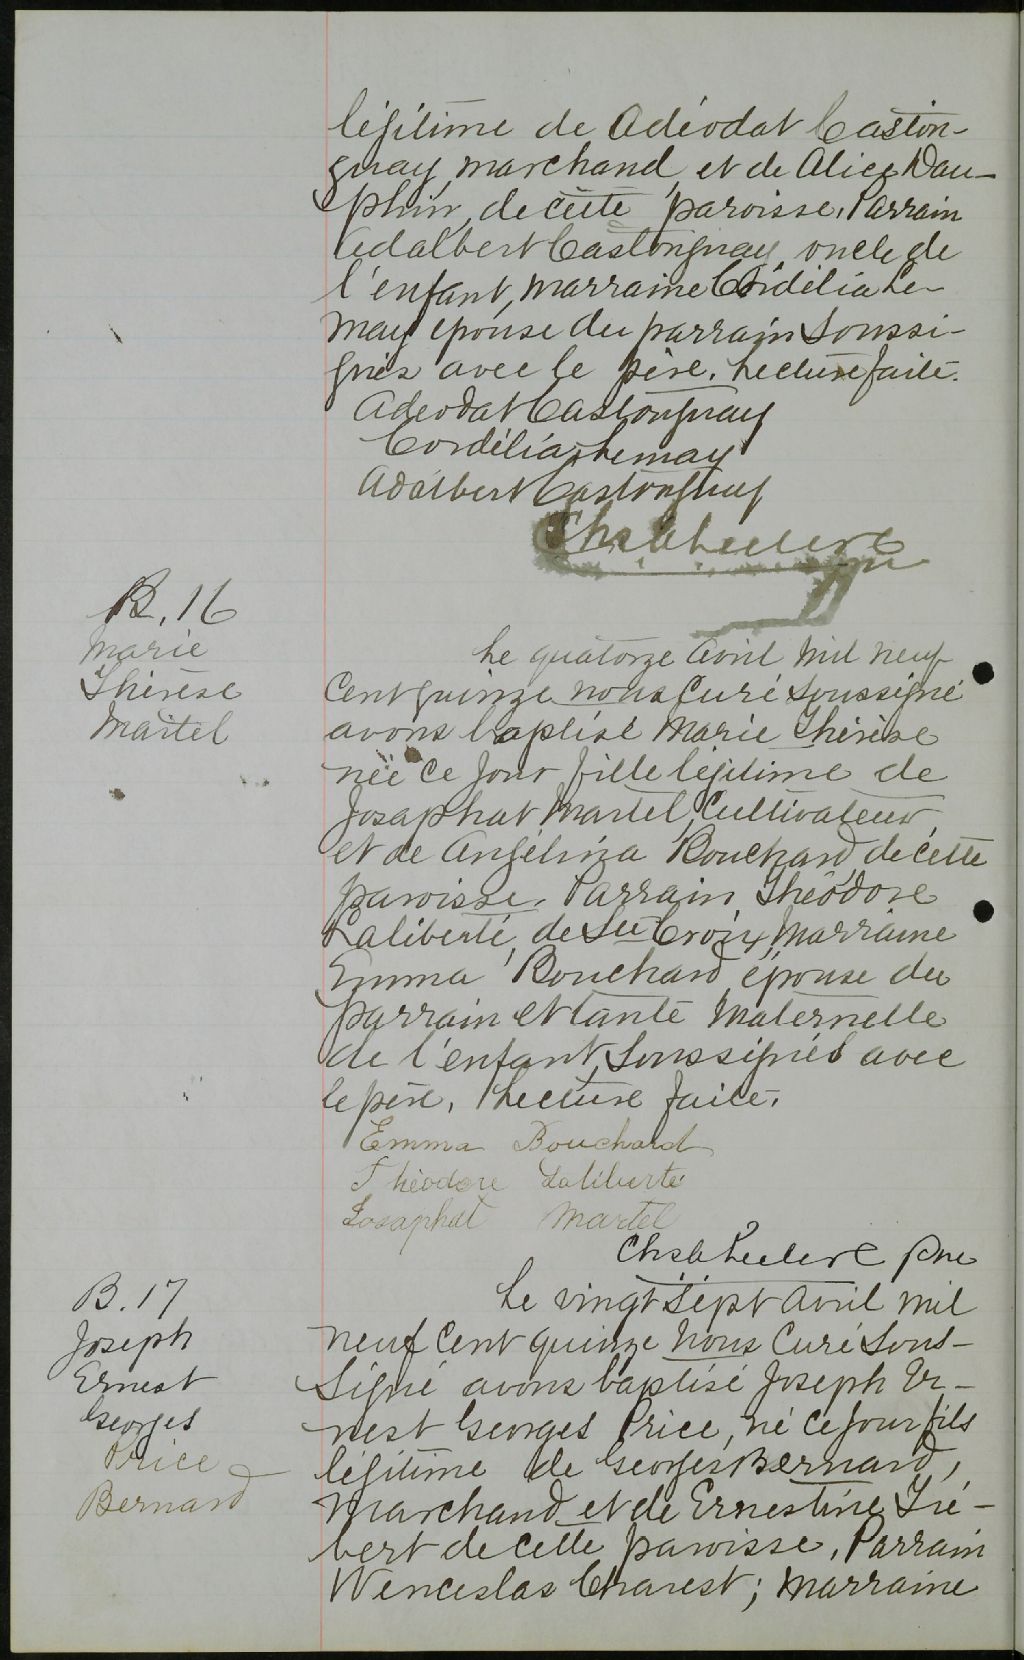 légitime de Adéodat Caston-
guay, marchand, et de Alice Dau-
phin, de cette paroisse. Parrain
Adalbert Castonguay, oncle de
l'enfant, marraine Cordélia Le-
may épouse du parrain soussi-
gnés avec le père. Lecture faite.
Adeodat Castonguay
Cordélia Lemay
Adalbert Castonguay
Chs Leclerc
B. 16
Marie
Thérèse
Martel
Le quatorze Avril mil neuf
cent quinze nous Curé soussigné
avons baptisé Marie Thérèse
née ce jour fille légitime de
Josaphat Martel, Cultivateur,
et de Angélina Bouchard de cette
paroisse. Parrain, Théodore
Laliberté, de Ste Croix, Marraine
Emma Bouchard, épouse du
parrain et tante maternelle
de l'enfant, soussignés avec
le père. Lecture faite.
Emma Bouchard
Théodore Laliberté
Josaphat Martel
Chs Leclerc Ptre
B. 17
Joseph
Ernest
Georges
Price
Bernard
Le vingt sept Avril mil
neuf cent quinze nous Curé sous-
signé avons baptisé Joseph Er-
nest Georges Price, né ce jour fils
légitime de Georges Bernard,
marchand et de Ernestine Tré-
bert de cette paroisse. Parrain
Wenceslas Charest; marraine